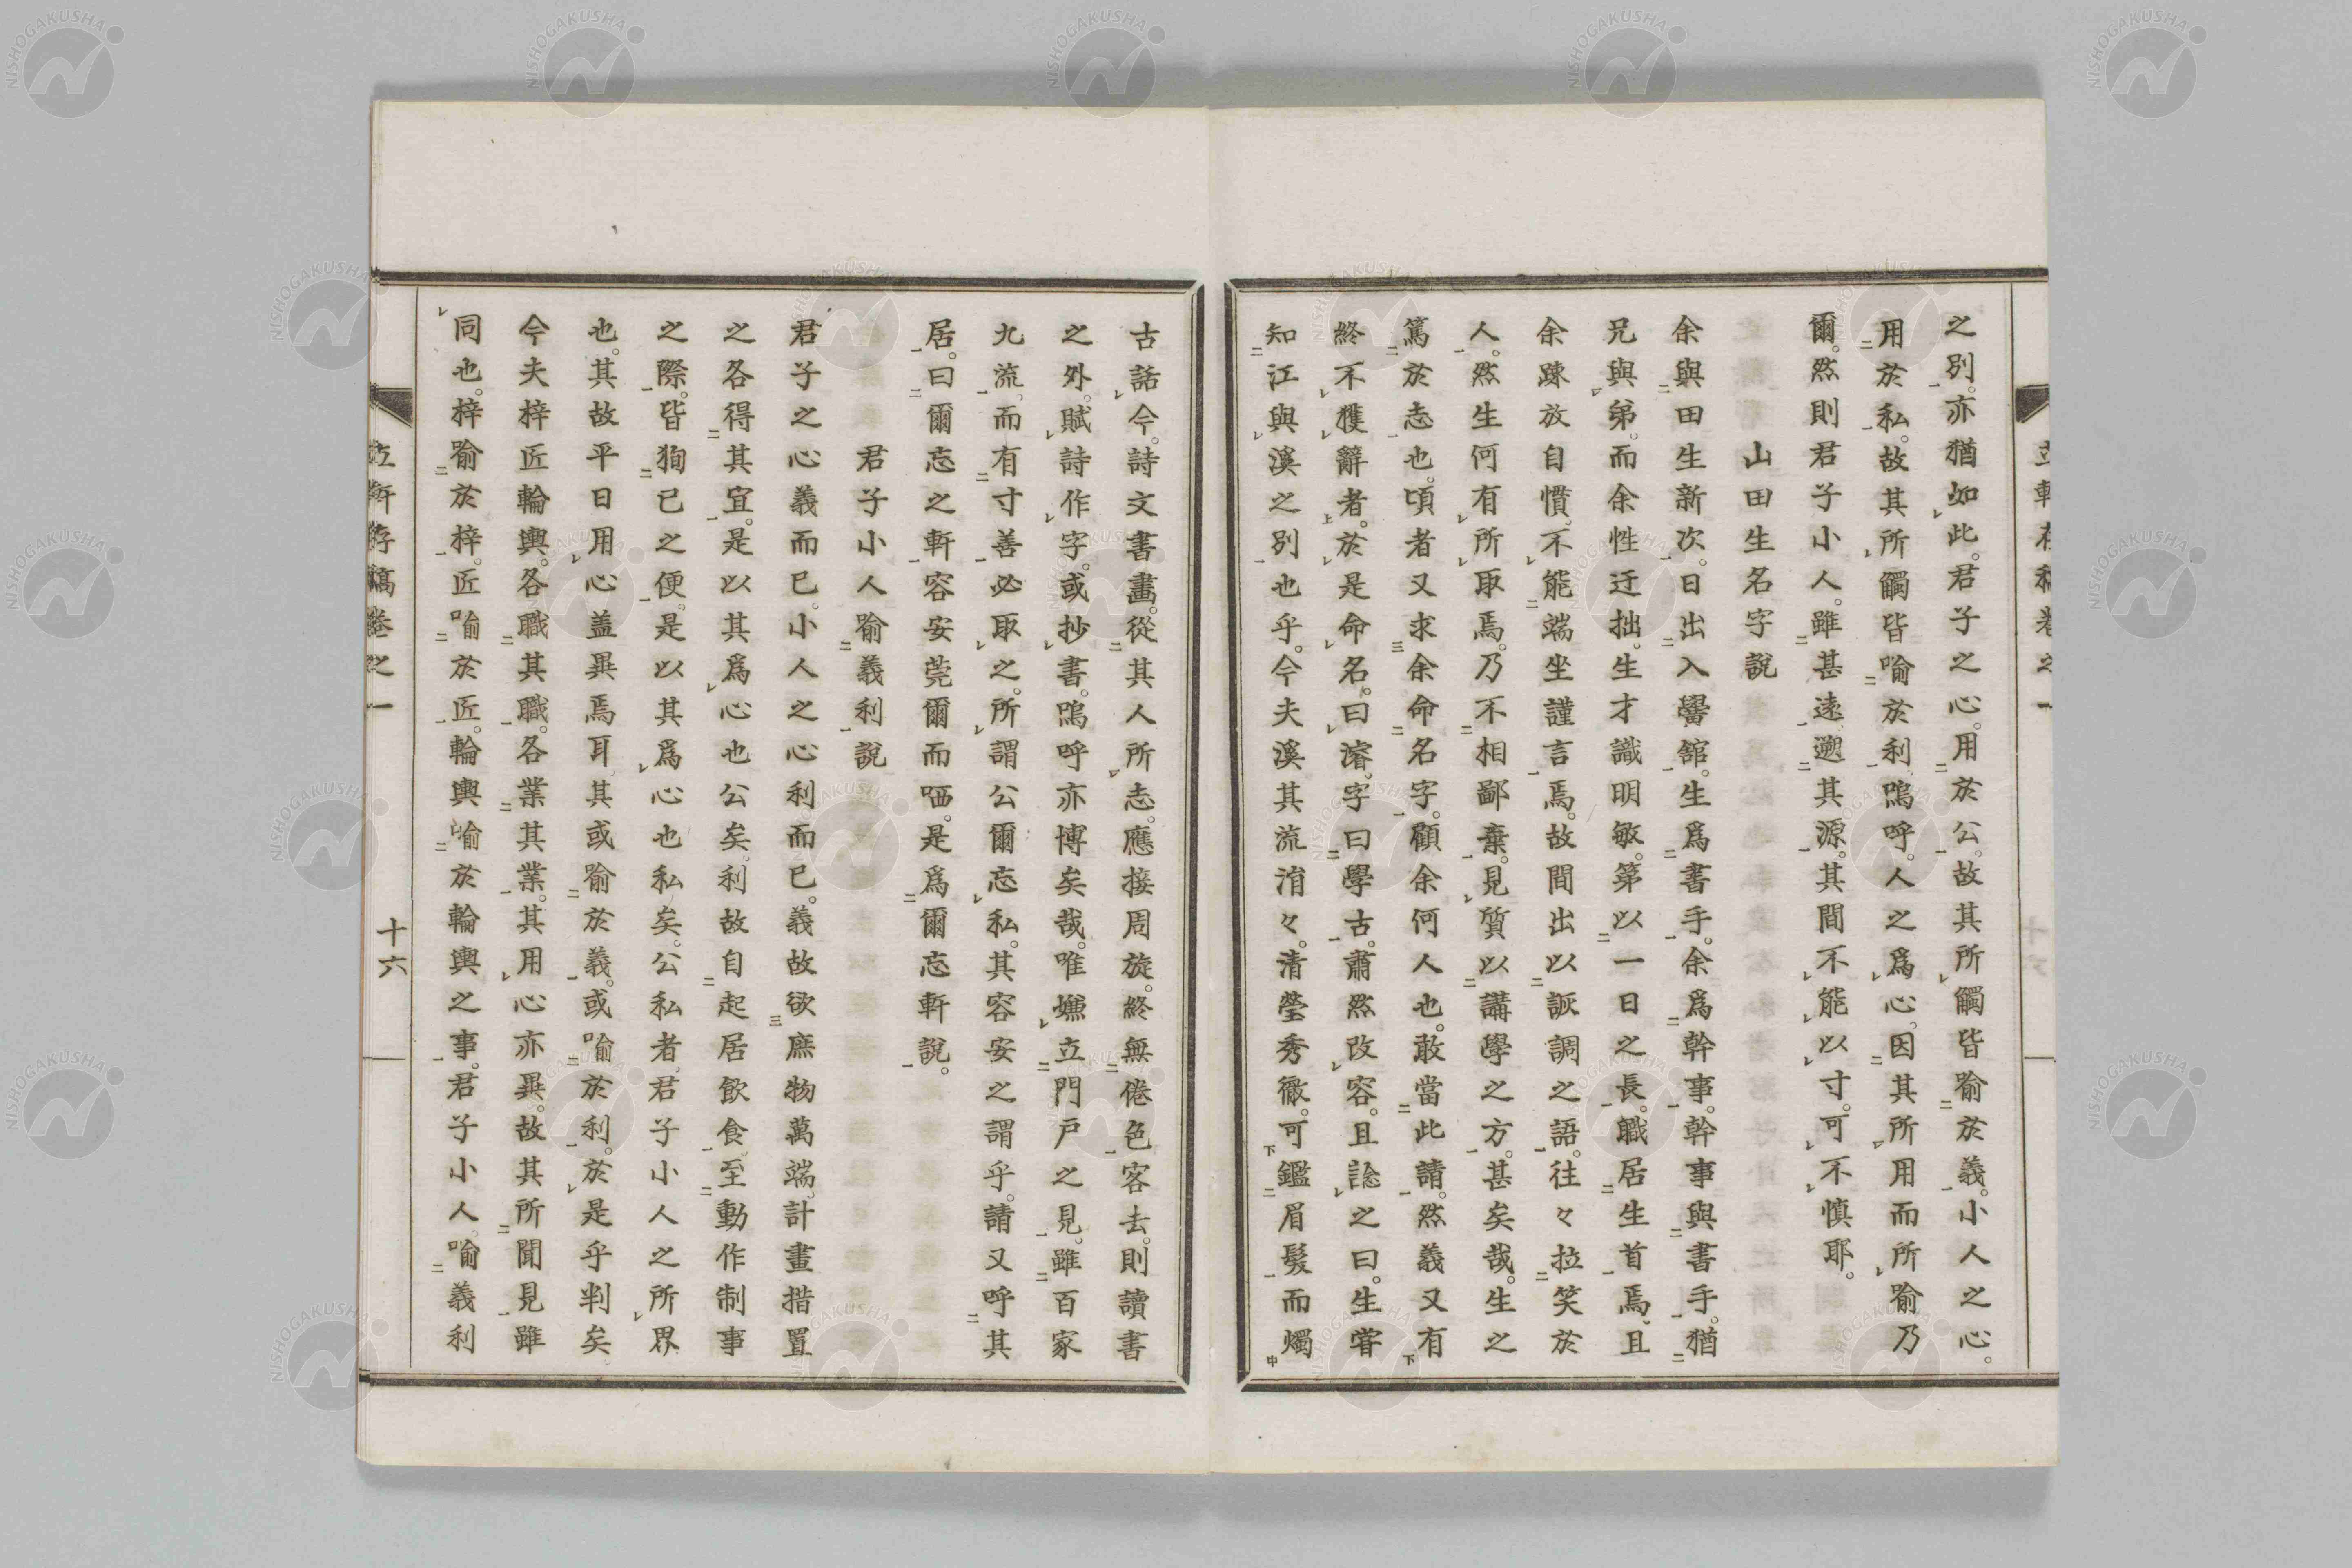 之別。亦猶如此。君子之心。用於公。故其所觸皆喩於義。小人之心。
用於私。故其所觸皆喩於利。嗚呼。人之爲心。因其所用而所喩乃
爾。然則君子小人。雖甚遠遡其源。其間不能以寸。可不慎耶。
山田生名字說
余與田生新次。日出入黌舘。生爲書手。余爲幹事。幹事與書手。猶
兄與弟。而余性迂拙。生才識明敏。第以一日之長。職居生首焉。且
余踈放自慣。不能端坐謹言焉。故間出以詼調之語。往々拉笑於
人。然生何有所取焉。乃不相鄙棄。見質以講學之方。甚矣哉。生之
篤於志也。頃者又求余命名字。顧余何人也。敢當此請。然義又有
終不獲辭者。於是命名。曰濬。字曰學古。肅然改容。且諗之曰。生甞
知江與溪之別也乎。今夫溪其流涓々。清瑩秀徹。可鑑眉髮而燭
古話今。詩文書畫。從其人所志。應接周旋。終無倦色客去。則讀書
之外。賦詩作字。或抄書。嗚呼亦博矣哉。唯嫌立門戸之見。雖百家
九流。而有寸善必取之。所謂公爾忘私。其容安之謂乎。請又呼其
居。曰爾忘之軒。容安莞爾而哂。是爲爾忘軒說。
君子小人喩義利說
君子之心義而已。小人之心利而已。義故欲庶物萬端。計畫措置
之各得其宜。是以其爲心也公矣。利故自起居飲食。至動作制事
之際。皆狥已之便。是以其爲心也私矣。公私者。君子小人之所界
也。其故平日用心盖異焉耳。其或喩於義。或喩於利。於是乎判矣
今夫梓匠輪輿。各職其職。各業其業。其用心亦異。故其所聞見雖
同也。梓喩於梓。匠喩於匠。輪輿喩於輪輿之事。君子小人。喩義利
立軒存稿卷之一
十六